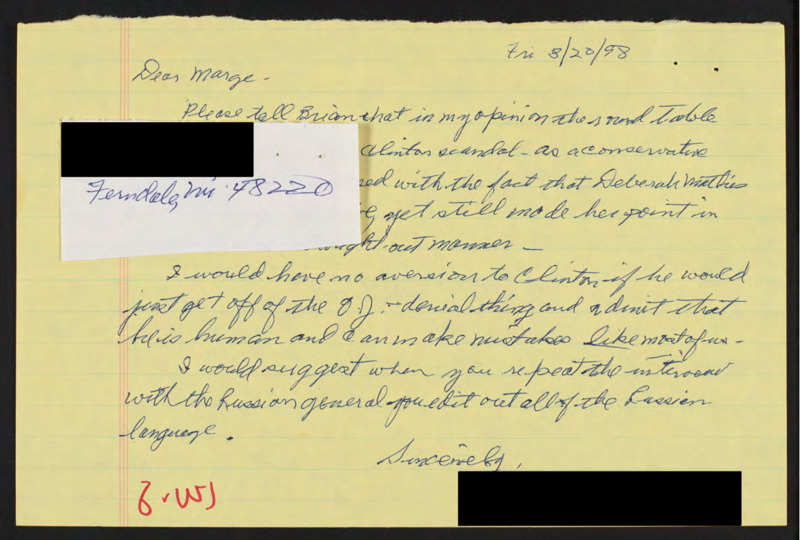 Fri 3/20/98
Dear Marge -
Please tell Brian that in my opinion the round table
Clinton scandal - as a conservative
Ferndale, Mi 48220
sed with the fact that Deborah Mathis
yet still made her point in
ught-out manner -
I would have no aversion to Clinton if he would
just get off of the O.J. - denial thing and admit that
he is human and can make mistakes like most of us -
I would suggest when you repeat the interview
with the Russian general you edit out all of the Russian
language.
Sincerely,